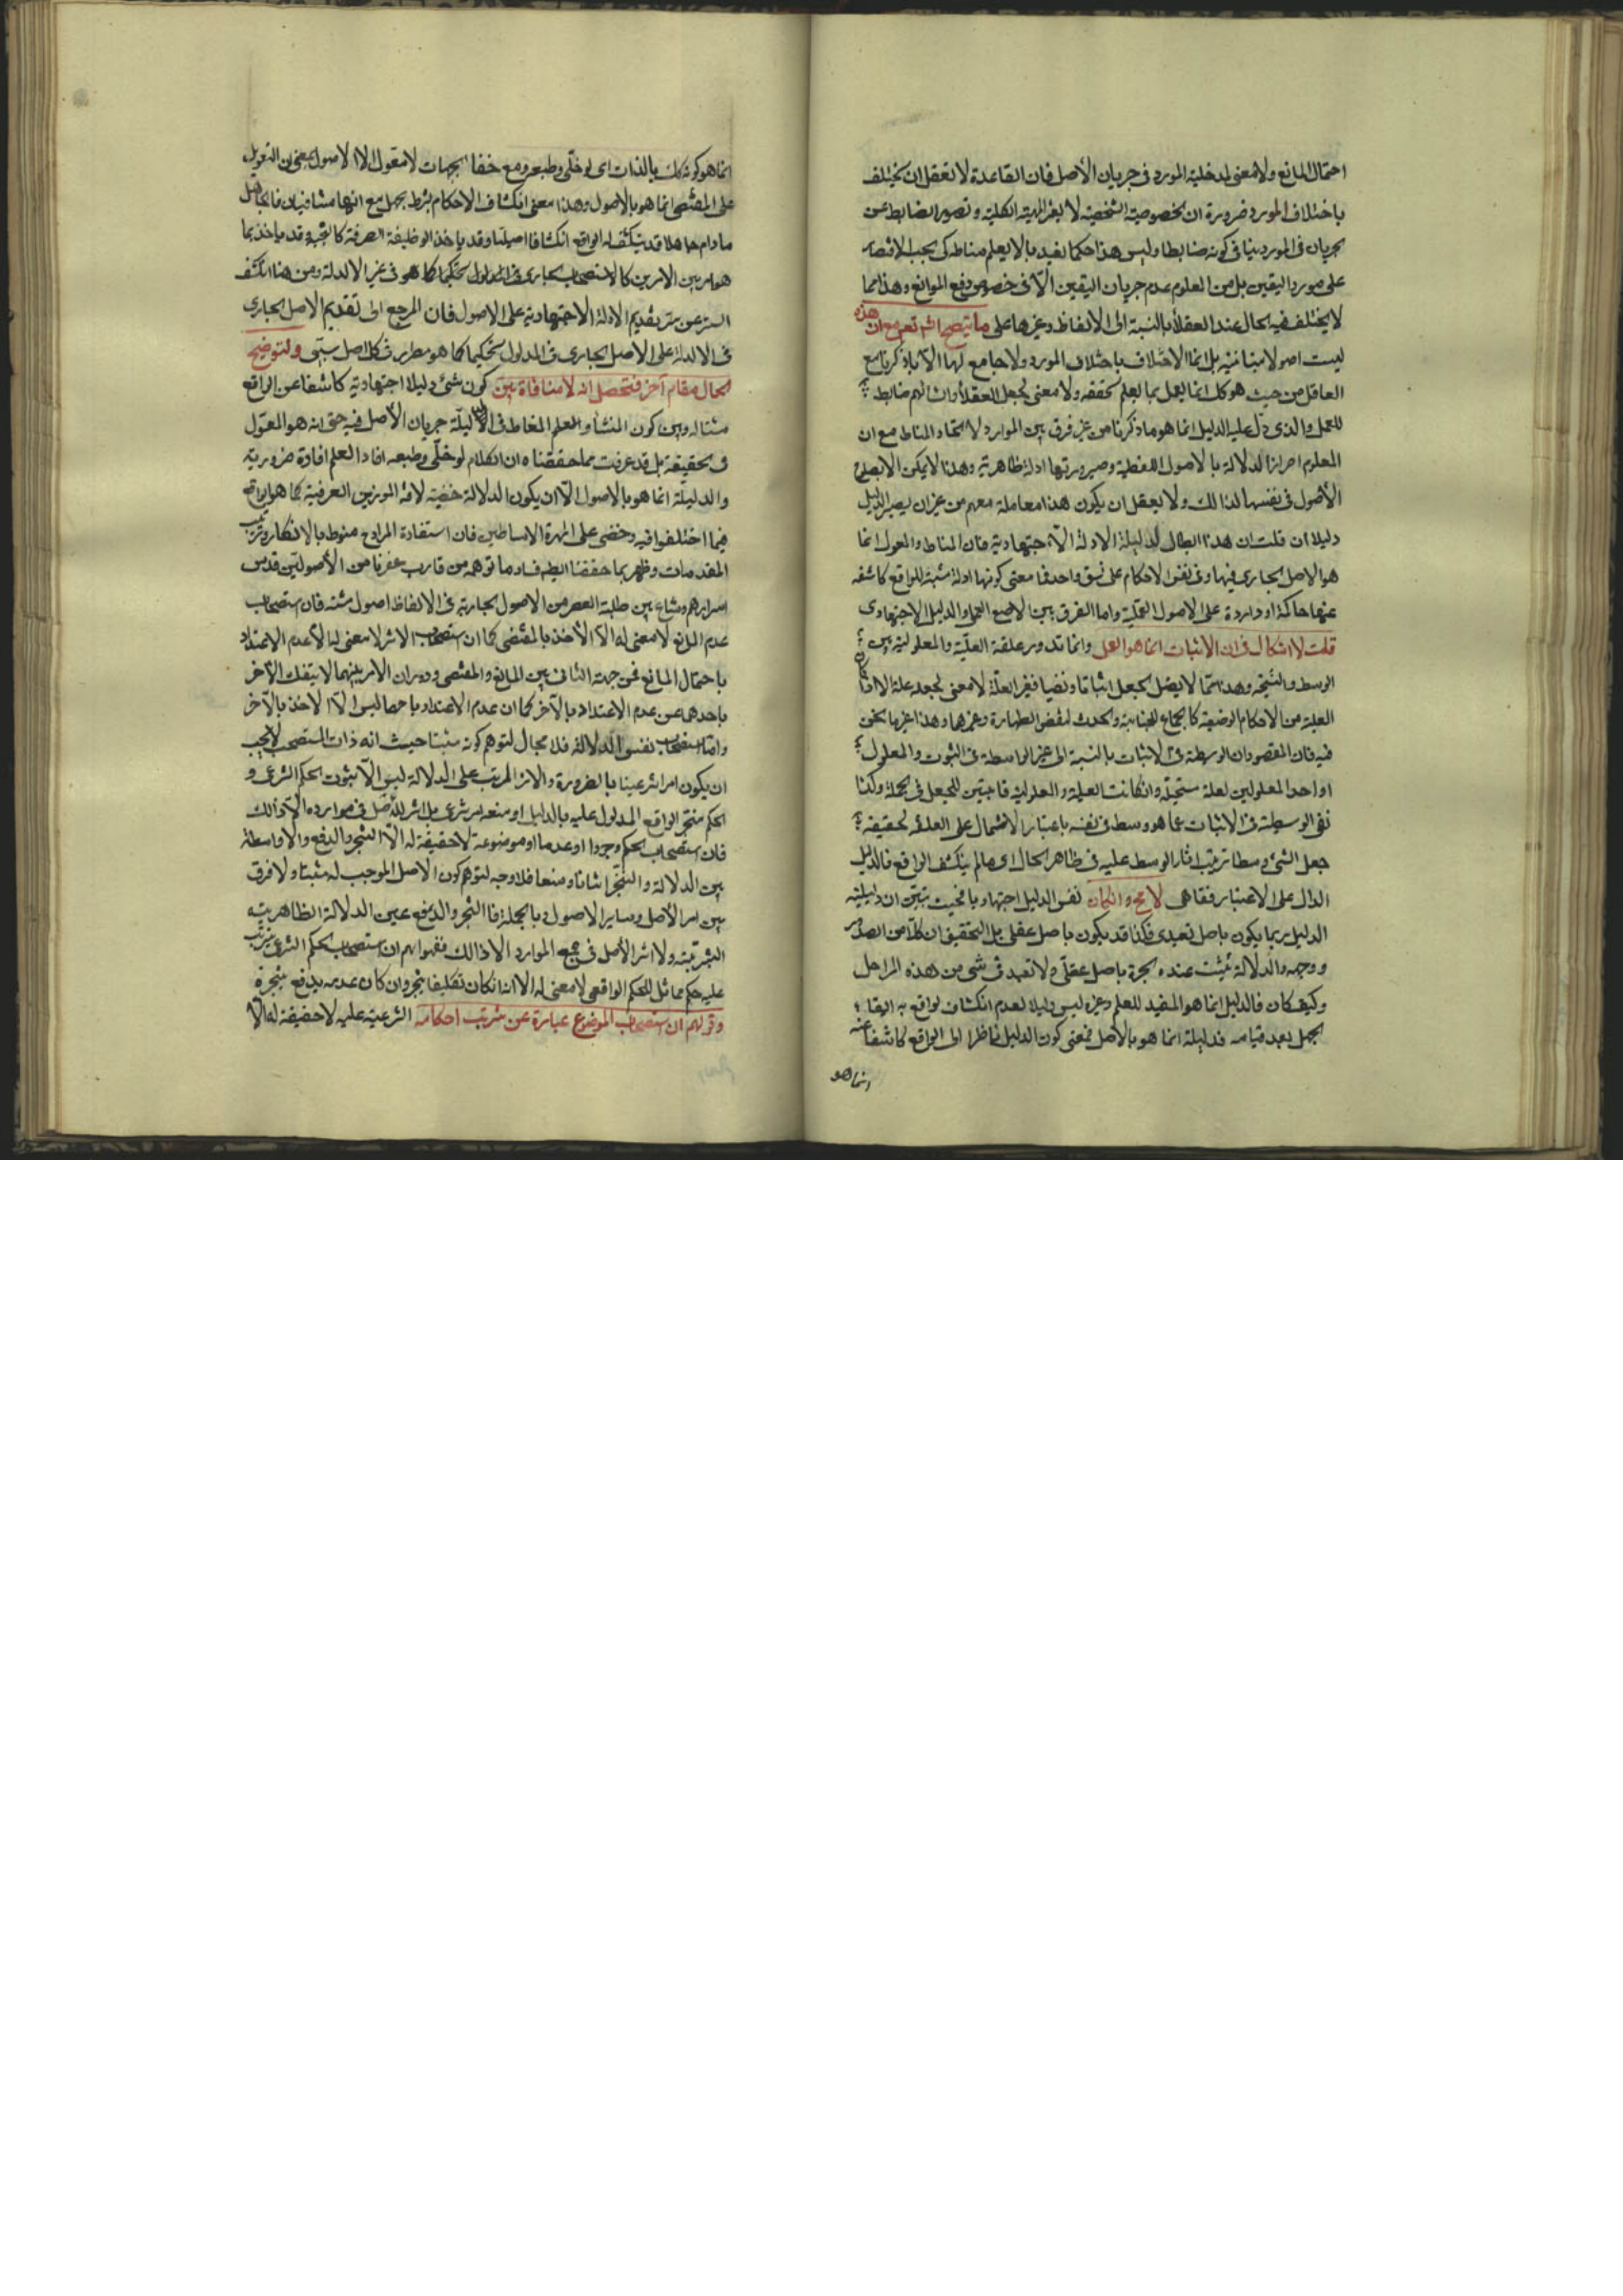 احتمال المانع ولا معنى لمدخلية المورد فى جريان الأصل فان القاعدة لا تعقل ان يختلف
باختلاف المورد ضرورة ان الخصوصية الشخصية لا الكلية و تصوير الضابط عن
جريان فى المورد ينافى كونه ضابطا وليس هذا حكما تعبد بما لا يعلم مناطه كى يجب الاقتصار
على مورد اليقين بل من المعلوم عدم جريان اليقين الّا فى خصوص دفع الموانع وهذا مما
لا يختلف فيه الحال عند العقلاء بالنسبة الى الالفاظ وغيرها على ما يتضح انشاء الله تعالى مع ان هذه
ليست اصولا متباينة بل انما الاختلاف باختلاف المورد ولا جامع لها الّا ما ذكرنا مع
العاقل من حيث هو كك انما يعمل بما يعلم تحققه ولا معنى لجعل العقلاء وان لهم ضابط
للعمل والذى دلّ عليه الدليل انما هو ما ذكرنا من غير فرق بين الموارد لاتحاد المناط مع ان
المعلوم احراز الدلالة بالاصول اللفظية وصيرورتها ادلة ظاهرية وهذا لا يمكن الا بصلوح
الأصول فى نفسها لذالك ولا يعقل ان يكون هذا معاملة معهم من غير ان يصير الدليل
دليلا ان قلت ان هذا ابطال لدليلية الادلة الاجتهادية فان المناط والمعول انما
هو الاصل الجارى فيها وفى نفس الاحكام على نسق واحد فما معنى كونها ادلة مثبتة للواقع كاشفه
عنها حاكمة او واردة على الاصول العملية واما الفرق بين الاصل العملى والدليل الاجتهادى
قلت لا اشكال فى ان الاثبات انما هو العلم وانما تدور علقة العلّية والمعلولية بين
الوسط والنتيجة وهذا مما لا يقبل الجعل اثباتا ونفيا فغير العلّة لا معنى لجعله علة الا افاضة
العلية من الاحكام الوضعية كالجماع للجنابة والحدث لنقض الطهارة وغيرها وهذا غير ما نحن
فيه فان المقصود ان الوسطية فى الاثبات بالنسبة الى غير الواسطة فى الثبوت والمعلول
او احد المعلولين لعلة مستحيلة وان كانت العلية والمعلولية قابلتين للجعل فى الجملة وكذا
نفى الوسطية فى الاثبات عما هو وسط فى نفسه باعتبار الاشتمال على العلقة الحقيقية
جعل الشئ وسطا ترتيب آثار الوسط عليه فى ظاهر الحال اى ما لم ينكشف الواقع فالدليل
الدال على الاعتبار فقاهى لا مح وان كان نفس الدليل اجتهاديا بحيث يتبيّن ان دليلية
الدليل ربما يكون باصل تعبدى فكذا قد يكون باصل عقلى بل التحقيق ان كلّا من الصدور
ووجهه والدلالة يثبت عنده الحجة باصل عقلى ولا تعبد فى شئ من هذه المراحل
وكيف كان فالدليل انما هو المفيد للعلم وغيره ليس دليلا لعدم انكشاف الواقع به لبقاء
الجهل بعد قيامه فدليليته انما هو بالاصل فمعنى كون الدليل ناظرا الى الواقع كاشفا عنه
انما هو
انما هو كونه كك بالذات اى لو خلّى وطبعه ومع خفاء الجهات لا معول الا الاصول بمعنى ان التعويل
على المقتضى انما هو بالاصول وهذا معنى انكشاف الاحكام بشرط الجهل مع انهما متنافيان فالجاهل
ما دام جاهلا قد ينكشف له الواقع انكشافا اصيليا وقد ياخذ الوظيفة الصرفة كالتخيير وقد ياخذ بما
هو امر بين الامرين كالاستصحاب الجارى فى المدلول تحكيما كما هو فى غير الادلة ومن هنا انكشف
السر عن سر تقديم الادلة الاجتهادية على الاصول فان المرجع الى تقديم الاصل الجارى
فى الادلة على الاصل الجارى فى المدلول تحكيما كما هو مطرد فى كل اصل سببى ولتوضيح
الحال مقام آخر فتحصل انه لا منافاة بين كون شئ دليلا اجتهاديه كاشفا عن الواقع
مثالا وبين كون المنشأ والعلم المناط فى الدليليّة جريان الأصل فيه حتى انه هو المعوّل
فى الحقيقة بل قد عرفت مما حققناه ان الكلام لو خلّى وطبعه افاد العلم افادة ضرورية
والدليلية انما هو بالاصول الّا ان يكون الدلالة خفيّة لا فى الموازين العرفية كما هو الواقع
فيما اختلفوا فيه وخفى على المهرة الاساطين فان استفادة المراد ح منوط بالافكار وترتيب
المقدمات وظهر بما حققنا ايضا فساد ما توهمه من قارب عصرنا من الأصوليّين قدس
اسرارهم وشاع بين طلبة العصر من الاصول الجارية فى الالفاظ اصول مثبته فان استصحاب
عدم المانع لا معنى له الّا الأخذ بالمقتضى كما ان استصحاب الاثر لا معنى له الّا عدم الاعتداد
باحتمال المانع فمن جهة التنافى بين المانع والمقتضى ودوران الامر بينهما لا ينفك الآخر
باحدهما عن عدم الاعتداد بالآخر كما ان عدم الاعتداد باحدهما ليس الّا الاخذ بالآخر
واما استصحاب نفس الدلالة فلا مجال لتوهم كونه مثبتا حيث انه ذات المستصحب لا يجب
ان يكون امرا شرعيا بالضرورة والاثر المرتب على الدلالة ليس الّا ثبوت الحكم الشرعى و
الحكم منجز الواقع المدلول عليه بالدليل او منعه امر شرعى بل اثر للأصل فى موارده الّا ذالك
فان استصحاب الحكم وجودا او عدما او موضوعه لا حقيقة له الّا التنجز والدفع والا واسطة
بين الدلالة والتنجز اثباتا ومنعا فلا وجه لتوهم كون الاصل الموجب له مثبتا ولا فرق
بين امر الأصل وساير الاصول وبالجملة فالتنجز والدفع عين الدلالة الظاهرية
المترتبة ولا اثر الأصل فى جميع الموارد الا ذالك فقولهم ان استصحاب الحكم الشرعى يترتب
عليه حكم مماثل للحكم الواقعى لا معنى له الا انه ان كان تكليفا ينجز وان كان عدمه يدفع تنجزه
وقولهم ان استصحاب الموضوع عبارة عن ترتيب احكامه الشرعية عليه لا حقيقة له الّا